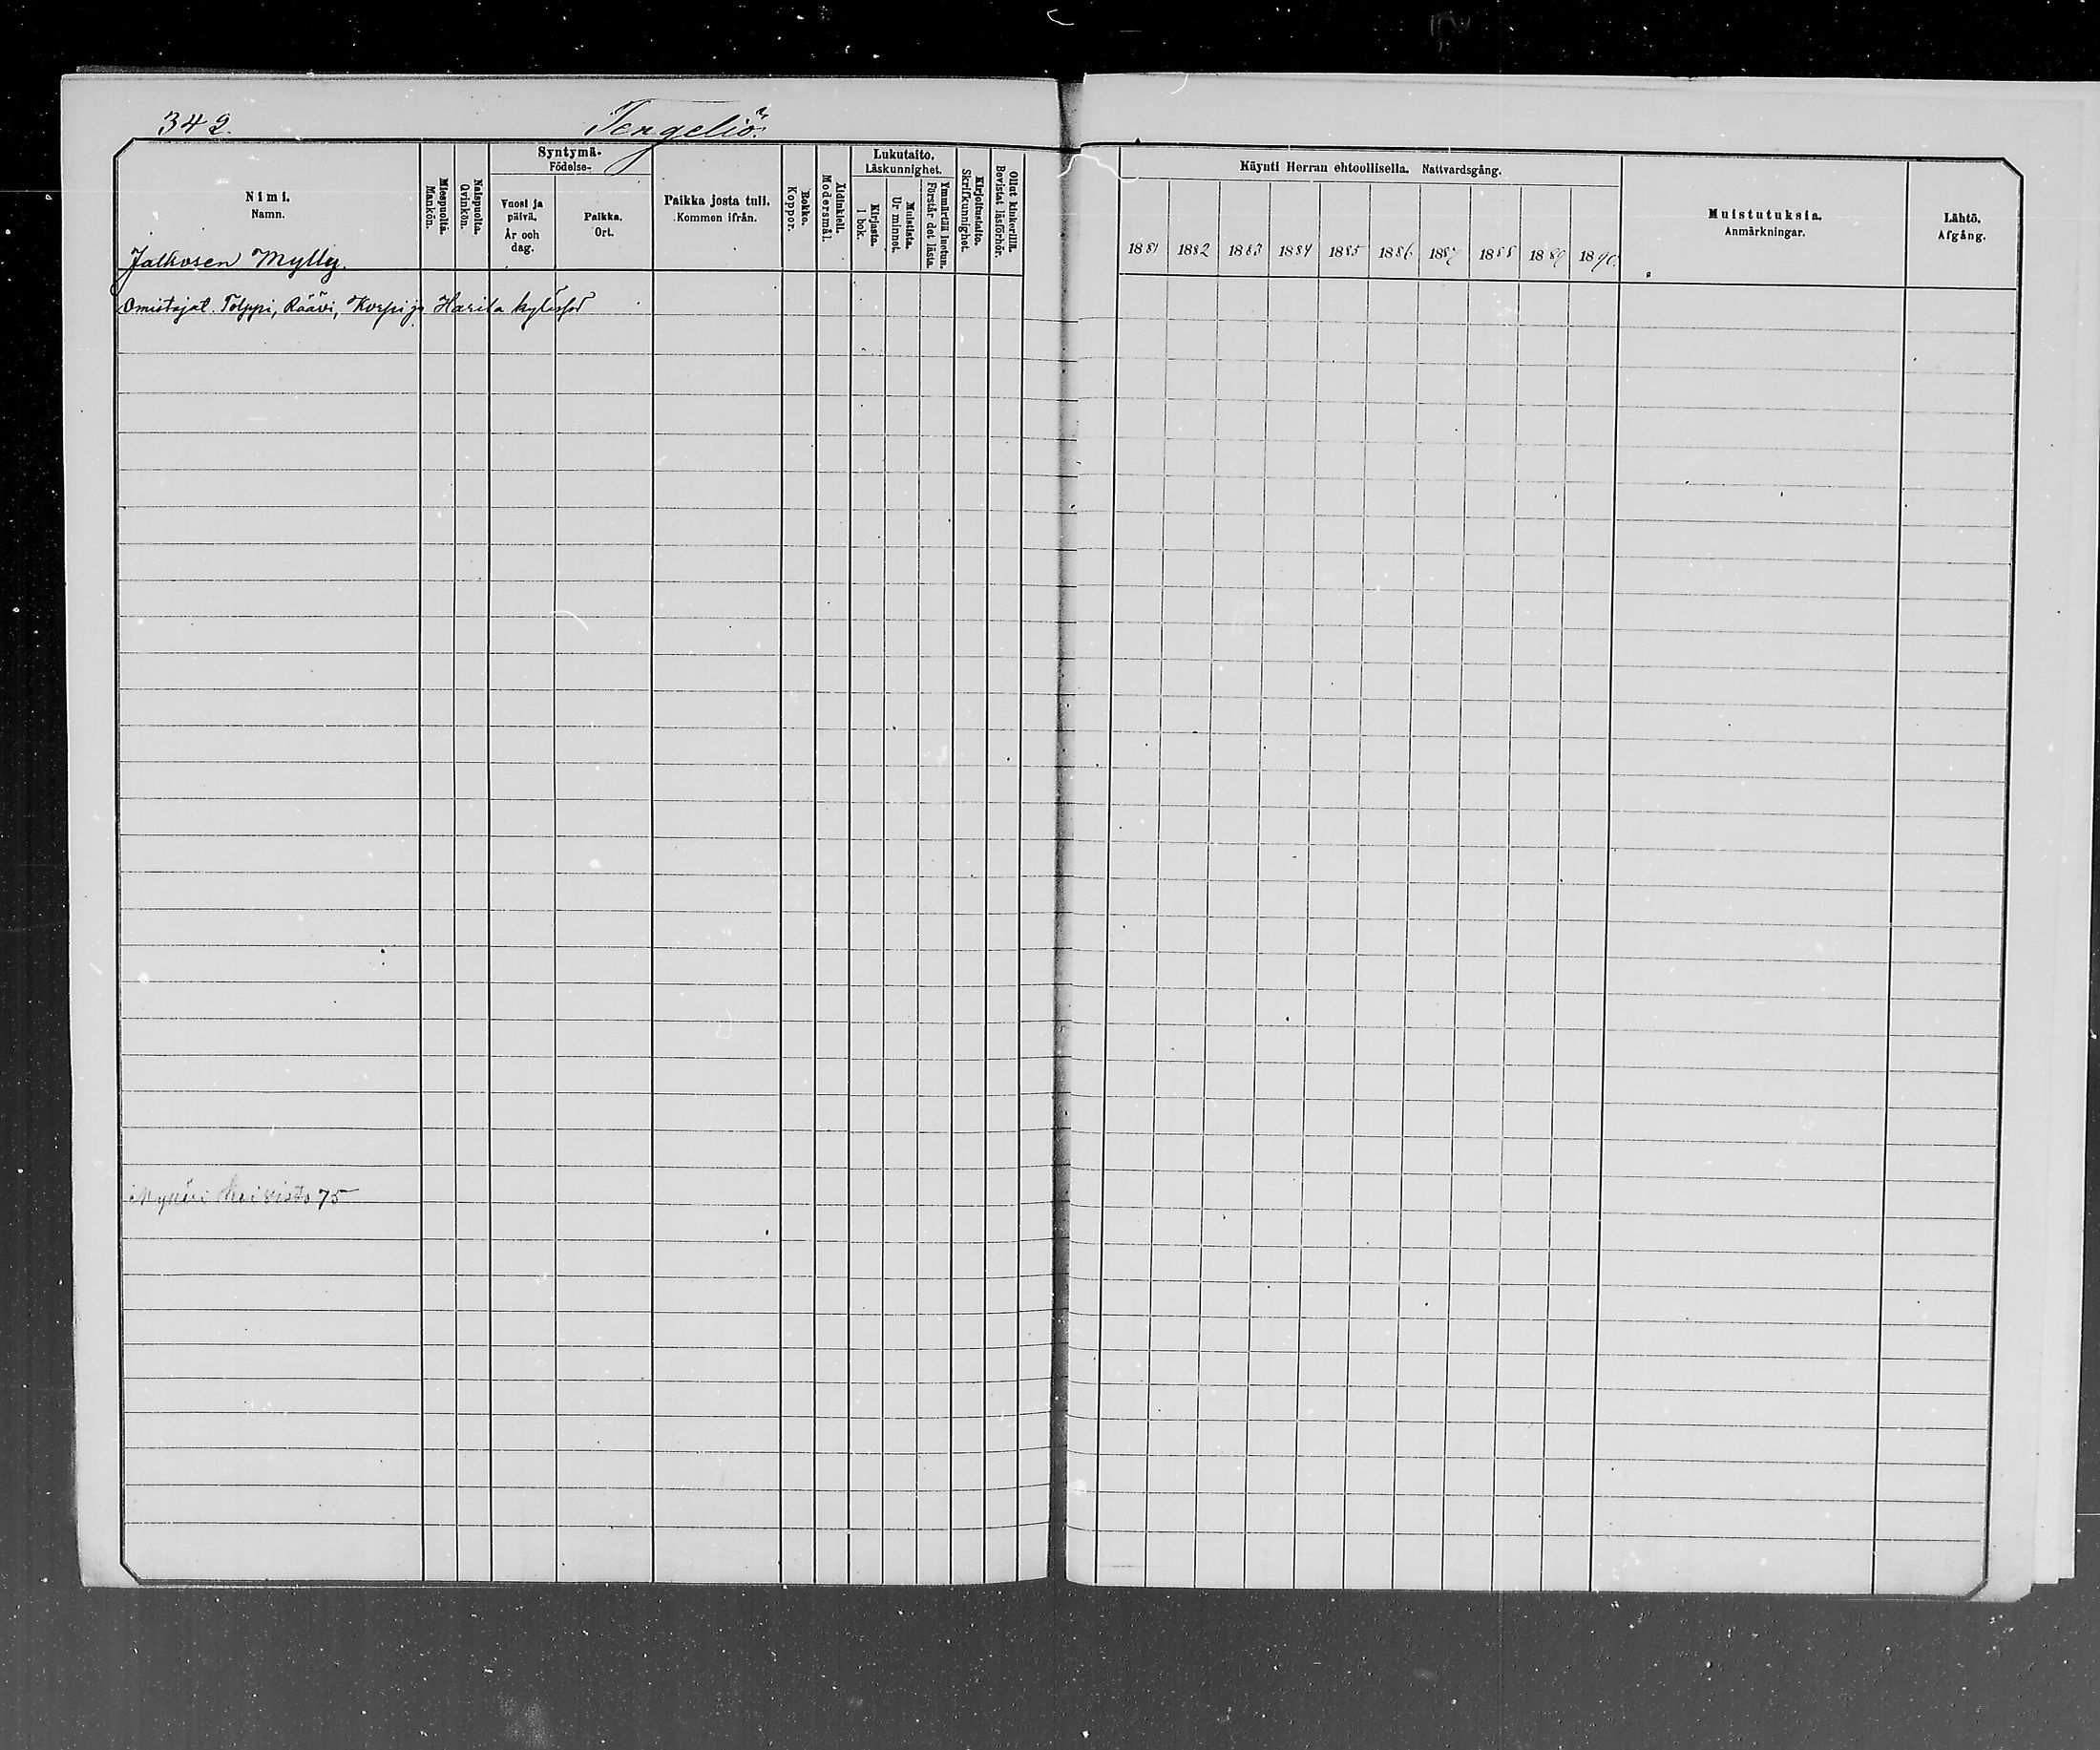 342. Tengeliö.
Nimi.
Namn.
Miespuolia.
Mankön.
Naispuolia.
Qvinkön.
Syntymä-
Födelse-
Vuosi ja päivä.
År och dag.
Paikka.
Ort.
Paikka josta tuli.
Kommen ifrån.
Rokko.
Koppor.
Äidinkieli.
Modersmål.
Lukutaito.
Läskunnighet.
Kirjasta.
I bok.
Muistista.
Ur minnet.
Ymmärtää luetun.
Förstår det lästa.
Kirjoitustaito.
Skrifkunnighet.
Ollut kinkerillä.
Bevistat läsförhör.
Käynti Herran ehtoollisella. Nattvardsgång.
1881 1882 1883 1884 1885 1886 1887 1888 1889 1890.
Muistutuksia.
Anmärkningar.
Lähtö.
Afgång.
Jalkosen Mylly.
Omistajat. Tolppi, Räävi, Korpi ja
Koivisto 75